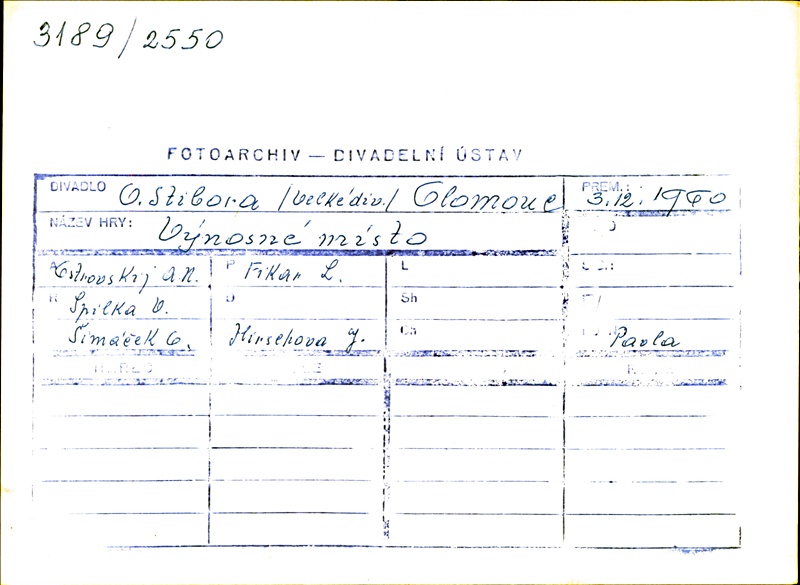 3189/2550
FOTOARCHIV — DIVADELNÍ ÚSTAV
DIVADLO O. Stibora /Velkédiv./ Olomouc PREM.: 3.12.1960
NÁZEV HRY: Výnosné místo
A Ostrovskij A.N. P Fikar L. L
R Špilka V. D Sh
Šimáček O. Hirschova J. Ch Pavla